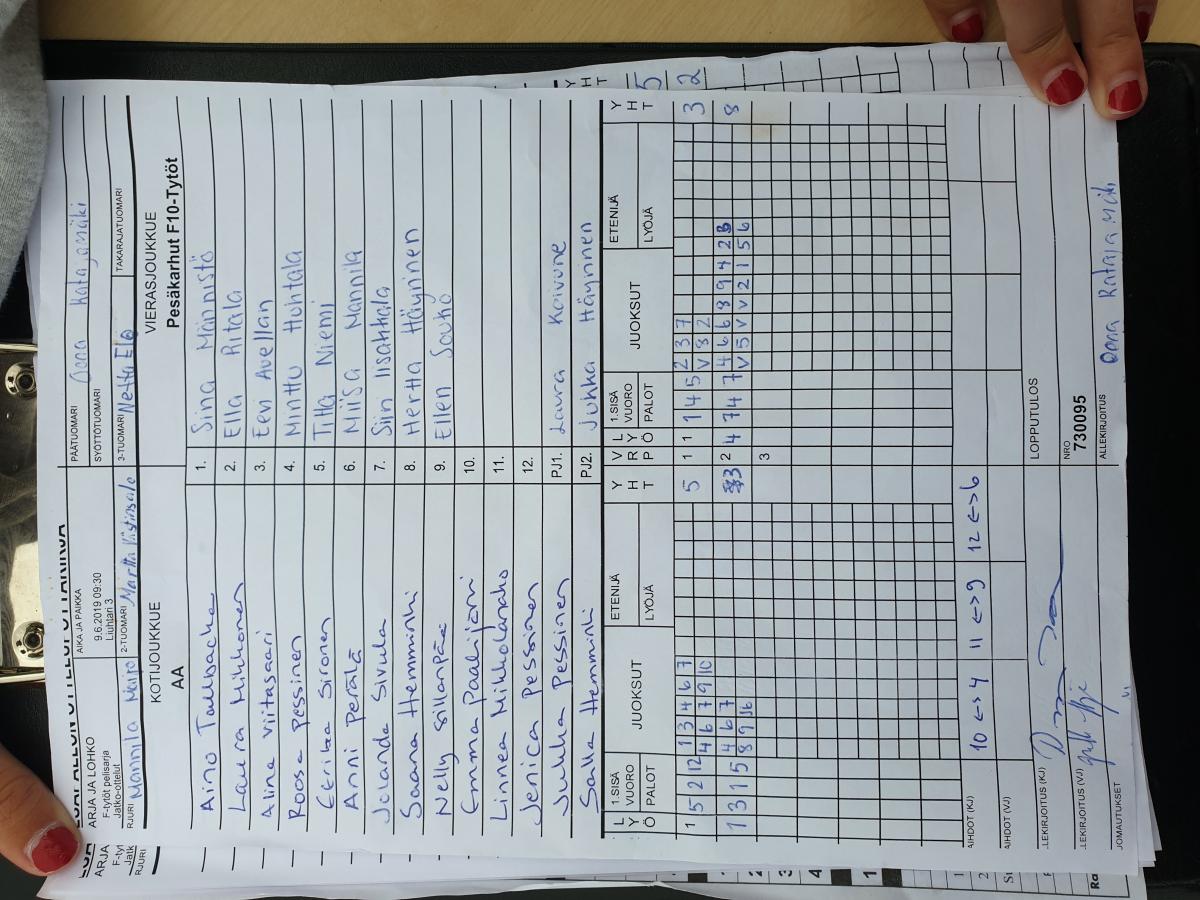 ARJA JA LOHKO
F-tyttöt pelisarja
Jatko-ottelut
AIKA JA PAIKKA
9.6.2019 09:30
Liuhtari 3
PÄÄTUOMARI
Oona
SYÖTTÖTUOMARI
RJURI Mannila
2-TUOMARI Martta
3-TUOMARI Netta Elo
TAKARAJATUOMARI
KOTIJOUKKUE
AA
VIERASJOUKKUE
Pesäkarhut F10-Tytöt
Aino Tallbacka 1. Siina Männistö
Laura Mikkonen 2. Ella Ritala
Aliina Viitasaari 3. Eevi Avellan
Roosa Pessinen 4. Minttu Huhtala
Eerika Sironen 5. Titta Niemi
Anni Perälä 6. Miisa Mannila
Jolanda Sivula 7. Siin Iisakkala
Saana Hemminki 8. Hertta Häyrinen
Nelly Sillanpää 9. Ellen Souko
Emma Paalijärvi 10.
Linnea Mikkolanaho 11.
Jenica Pessinen 12.
Jukka Pessinen PJ1. Laura Koivune
Salla Hemminki PJ2. Jukka Häyrinen
L Y Ö 1.SISÄ VUORO PALOT JUOKSUT ETENIJÄ LYÖJÄ Y H T V R P L Y Ö 1.SISÄ VUORO PALOT JUOKSUT ETENIJÄ LYÖJÄ Y H T
1 5 2 12 1 3 4 6 7 5 1 1 1 4 5 2 3 7 3
4 6 7 9 10 V 8 2
1 3 1 5 4 6 7 3 2 4 7 4 7 4 6 6 8 9 4 2 3 8
8 9 16 V 5 V V 2 1 5 6
3
AIHDOT (KJ) 10 <-> 4 11 <-> 9 12 <-> 6
AIHDOT (VJ)
LEKIRJOITUS (KJ)
LOPPUTULOS
LEKIRJOITUS (VJ)
NRO
730095
JOMAUTUKSET
ALLEKIRJOITUS
Oona